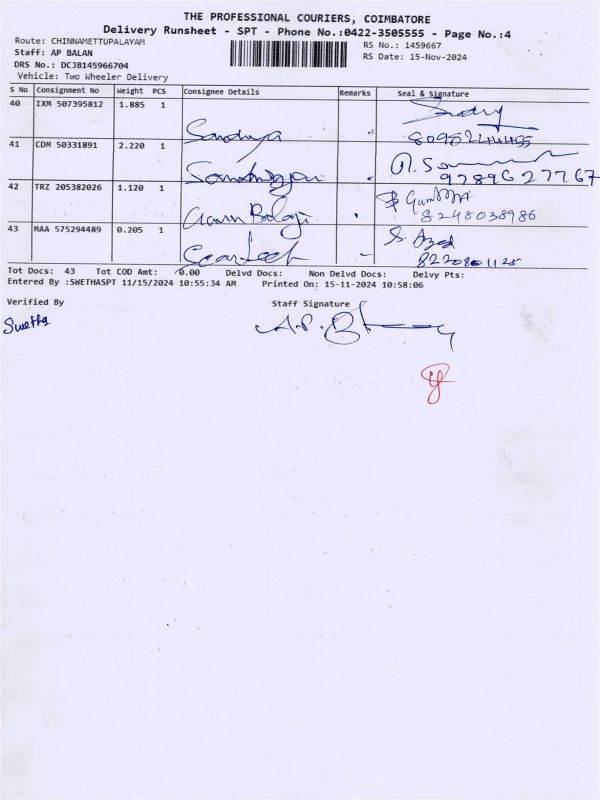 THE PROFESSIONAL COURIERS, COIMBATORE
Delivery Runsheet - SPT - Phone No.:0422-3505555 - Page No.:4
Route: CHINNAMETTUPALAYAM
RS No.: 1459667
Staff: AP BALAN
RS Date: 15-Nov-2024
DRS No.: DCJB145966704
Vehicle: Two Wheeler Delivery
S No Consignment No Weight PCS Consignee Details Remarks Seal & Signature
40 IXM 507395812 1.885 1
Sandhya
41 CDM 50331891 2.220 1
9789627767
42 TRZ 205382026 1.120 1
Balaji
8248038986
43 MAA 575294489 0.205 1
S. Azad
8220801125
Tot Docs: 43 Tot COD Amt: 0.00 Delvd Docs: Non Delvd Docs: Delvy Pts:
Entered By :SWETHASPT 11/15/2024 10:55:34 AM Printed On: 15-11-2024 10:58:06
Verified By Staff Signature
Swetha
A.P.